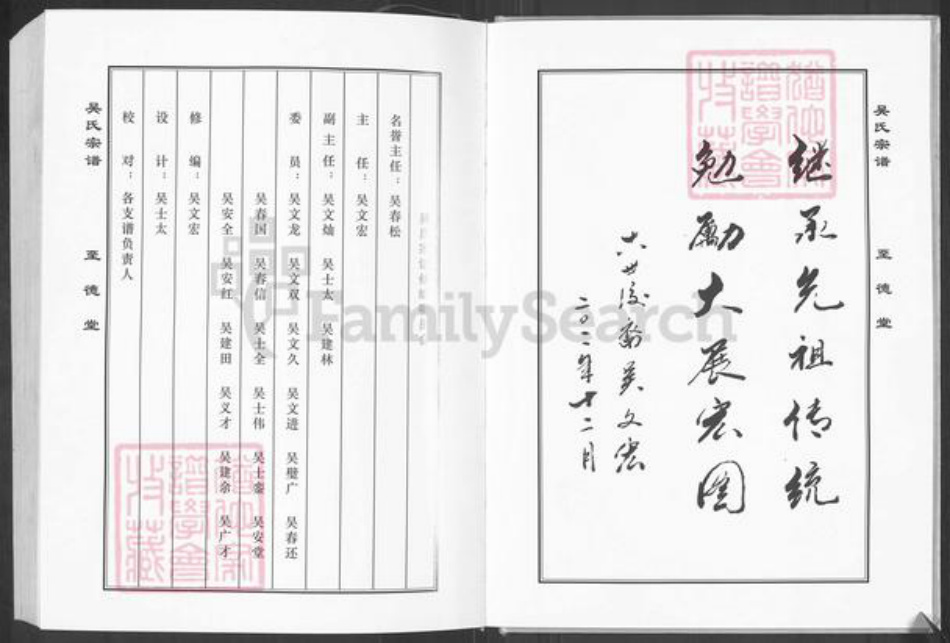 吴氏宗谱
至德堂
继承先祖传统
勉励大展宏图
十八世后裔吴文宏
二〇一一年十二月
名誉主任：吴春松
主任：吴文宏
副主任：吴文灿 吴士太 吴建林
委员：吴文龙 吴文双 吴文久 吴文进 吴璧广 吴春还
吴春国 吴春信 吴士全 吴士伟 吴士銮 吴安堂
吴安全 吴安红 吴建田 吴义才 吴建余 吴广才
修编：吴文宏
设计：吴士太
校对：各支谱负责人
吴氏宗谱
至德堂
谱学会
收藏
谱学会
收藏
FamilySearch